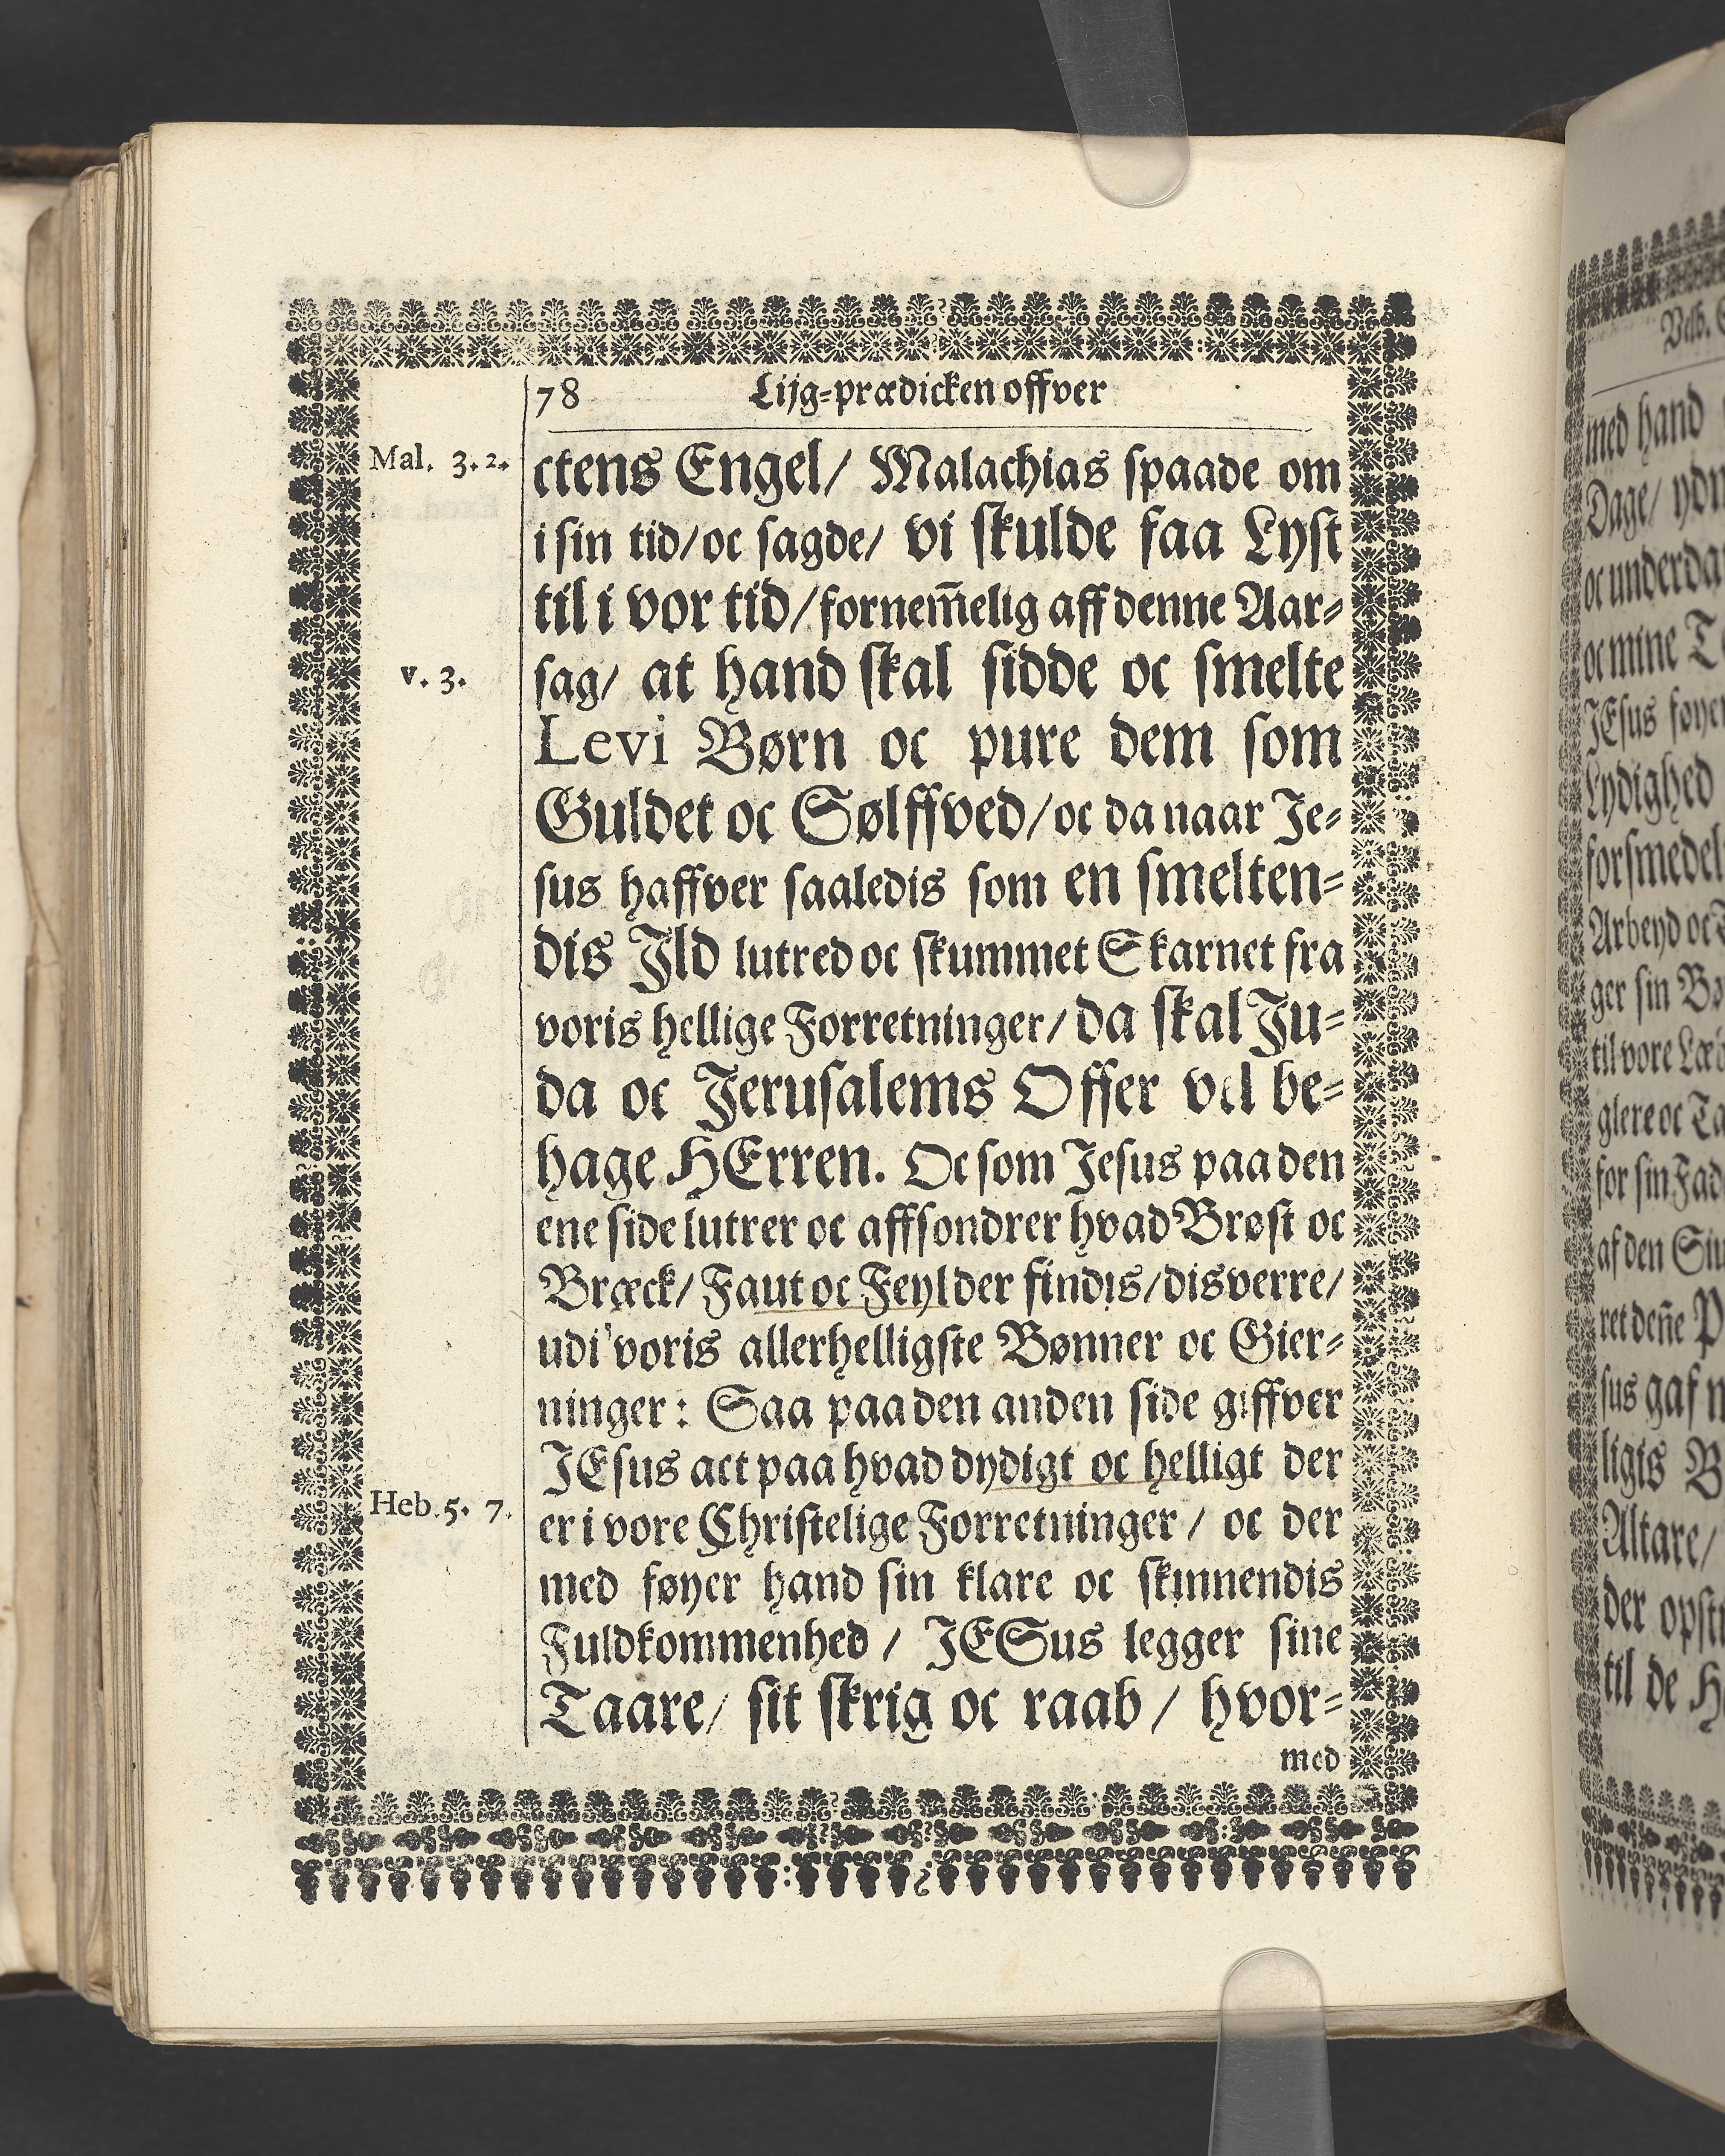 78 Lijg-prædicken offver
Mal. 3. 2.
ctens Engel/ Malachias spaade om
i sin tid/ oc sagde/ vi skulde faa Lyst
til i vor tid/ fornem̄elig aff denne Aar-
v. 3.
sag/ at hand skal sidde oc smelte
Levi Børn oc pure dem som
Guldet oc Sølffved/ oc da naar Je-
sus haffver saaledis som en smelten-
dis Ild lutred oc skummet Skarnet fra
voris hellige Forretninger/ da skal Ju-
da oc Jerusalems Offer vel be-
hage HErren. Oc som Jesus paa den
ene side lutrer oc affsondrer hvad Brøst oc
Bræck/ Faut oc Feyl der findis/ disverre/
udi voris allerhelligste Bønner oc Gier-
ninger: Saa paa den anden side giffver
JEsus act paa hvad dydigt oc helligt der
Heb. 5. 7.
er i vore Christelige Forretninger/ oc der
med føyer hand sin klare oc skinnendis
Fuldkommenhed/ JESus legger sine
Taare/ sit skrig oc raab/ hvor-
med
med hand
Dage/ ydm
oc underda
oc mine T
JEsus føyer
Lydighed
forsmedel
Arbeyd oc
ger sin Bø
til vore Læ
glere oc Ta
for sin Fad
af den
ret den̄e P
sus gaf
ligis B
Altare/
der opst
til de H